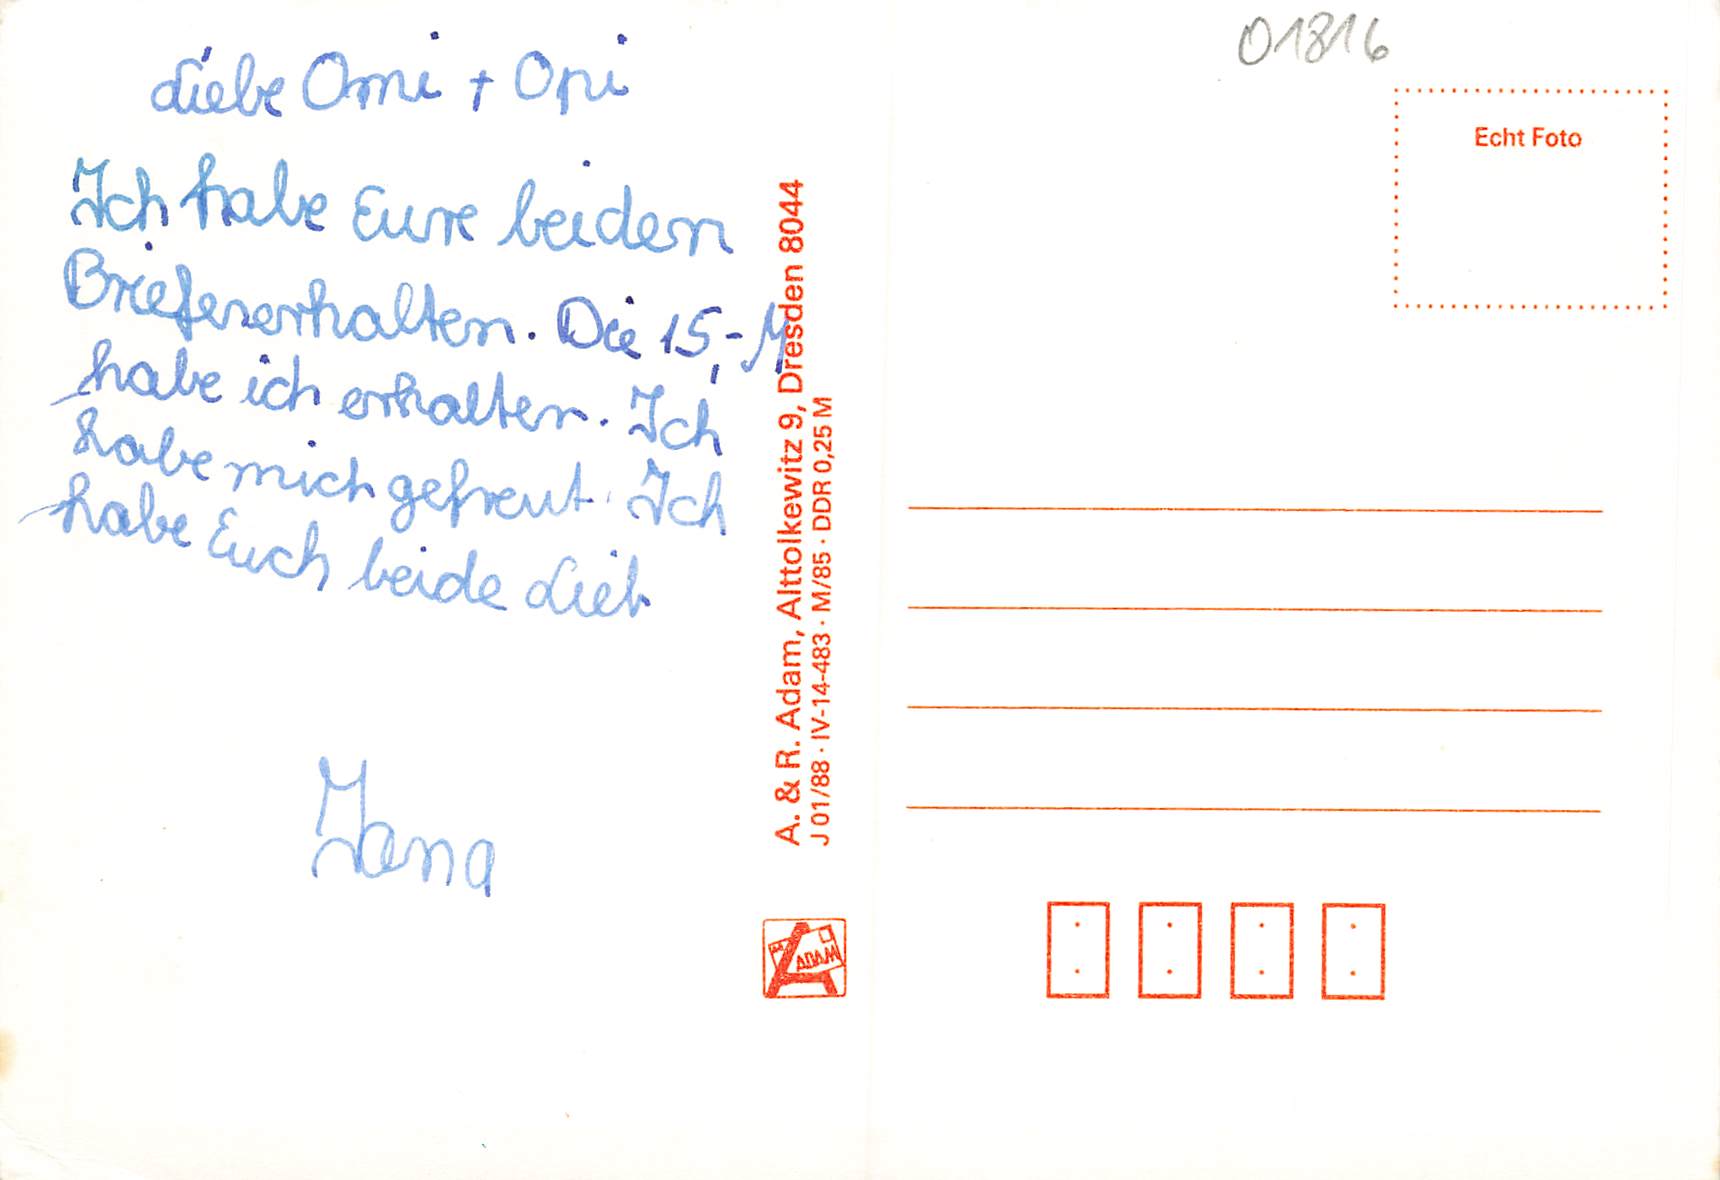 liebe Omi + Opi
Ich habe Eure beiden
Briefenerhalten. Die 15,-M
habe ich erhalten. Ich
habe mich gefreut. Ich
habe Euch beide lieb
Jana
A. & R. Adam, Alttolkewitz 9, Dresden 8044
J 01/88 · IV-14-483 · M/85 · DDR 0,25 M
ADAM
01816
Echt Foto